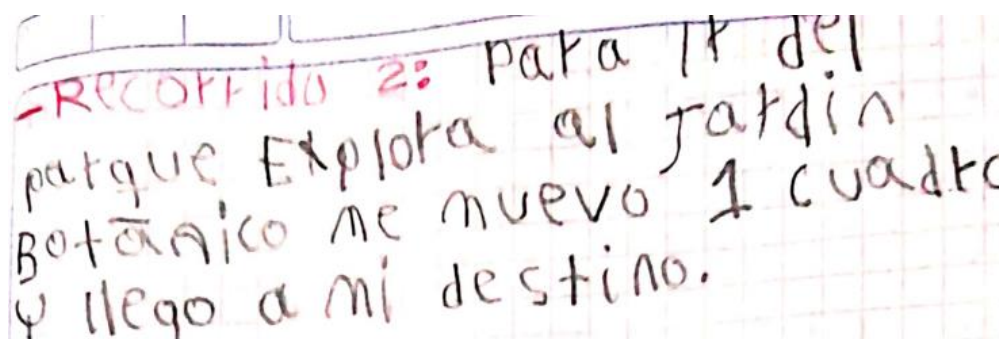 -Recorrido 2: Para ir del
parque Explora al Jardin
Botánico me muevo 1 cuadro
y llego a mi destino.